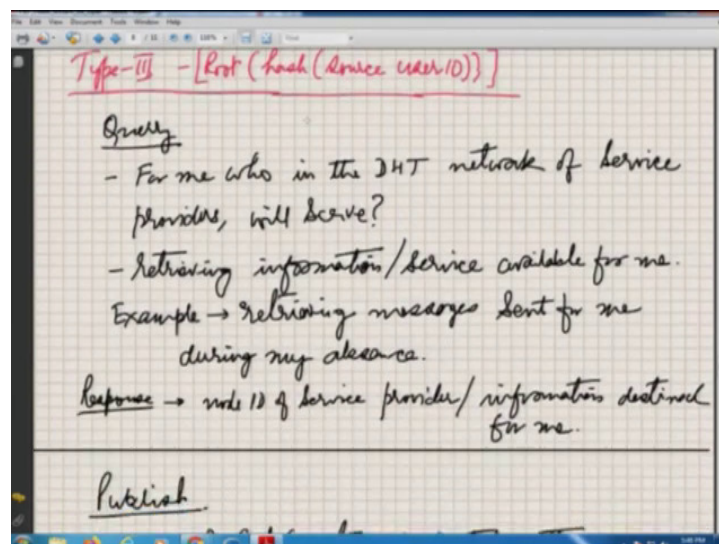 File Edit View Document Tools Window Help
Type-III - [Root (hash (source user ID))]
Query
- For me who in the DHT network of service
providers, will serve?
- retrieving information/service available for me.
Example → retrieving messages sent for me
during my absence.
Response → node ID of service provider/information destined
for me.
Publish
5:40 PM